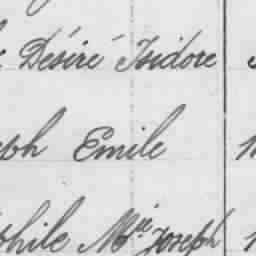 Désiré Isidore
eph Emile
phile Mie Joseph